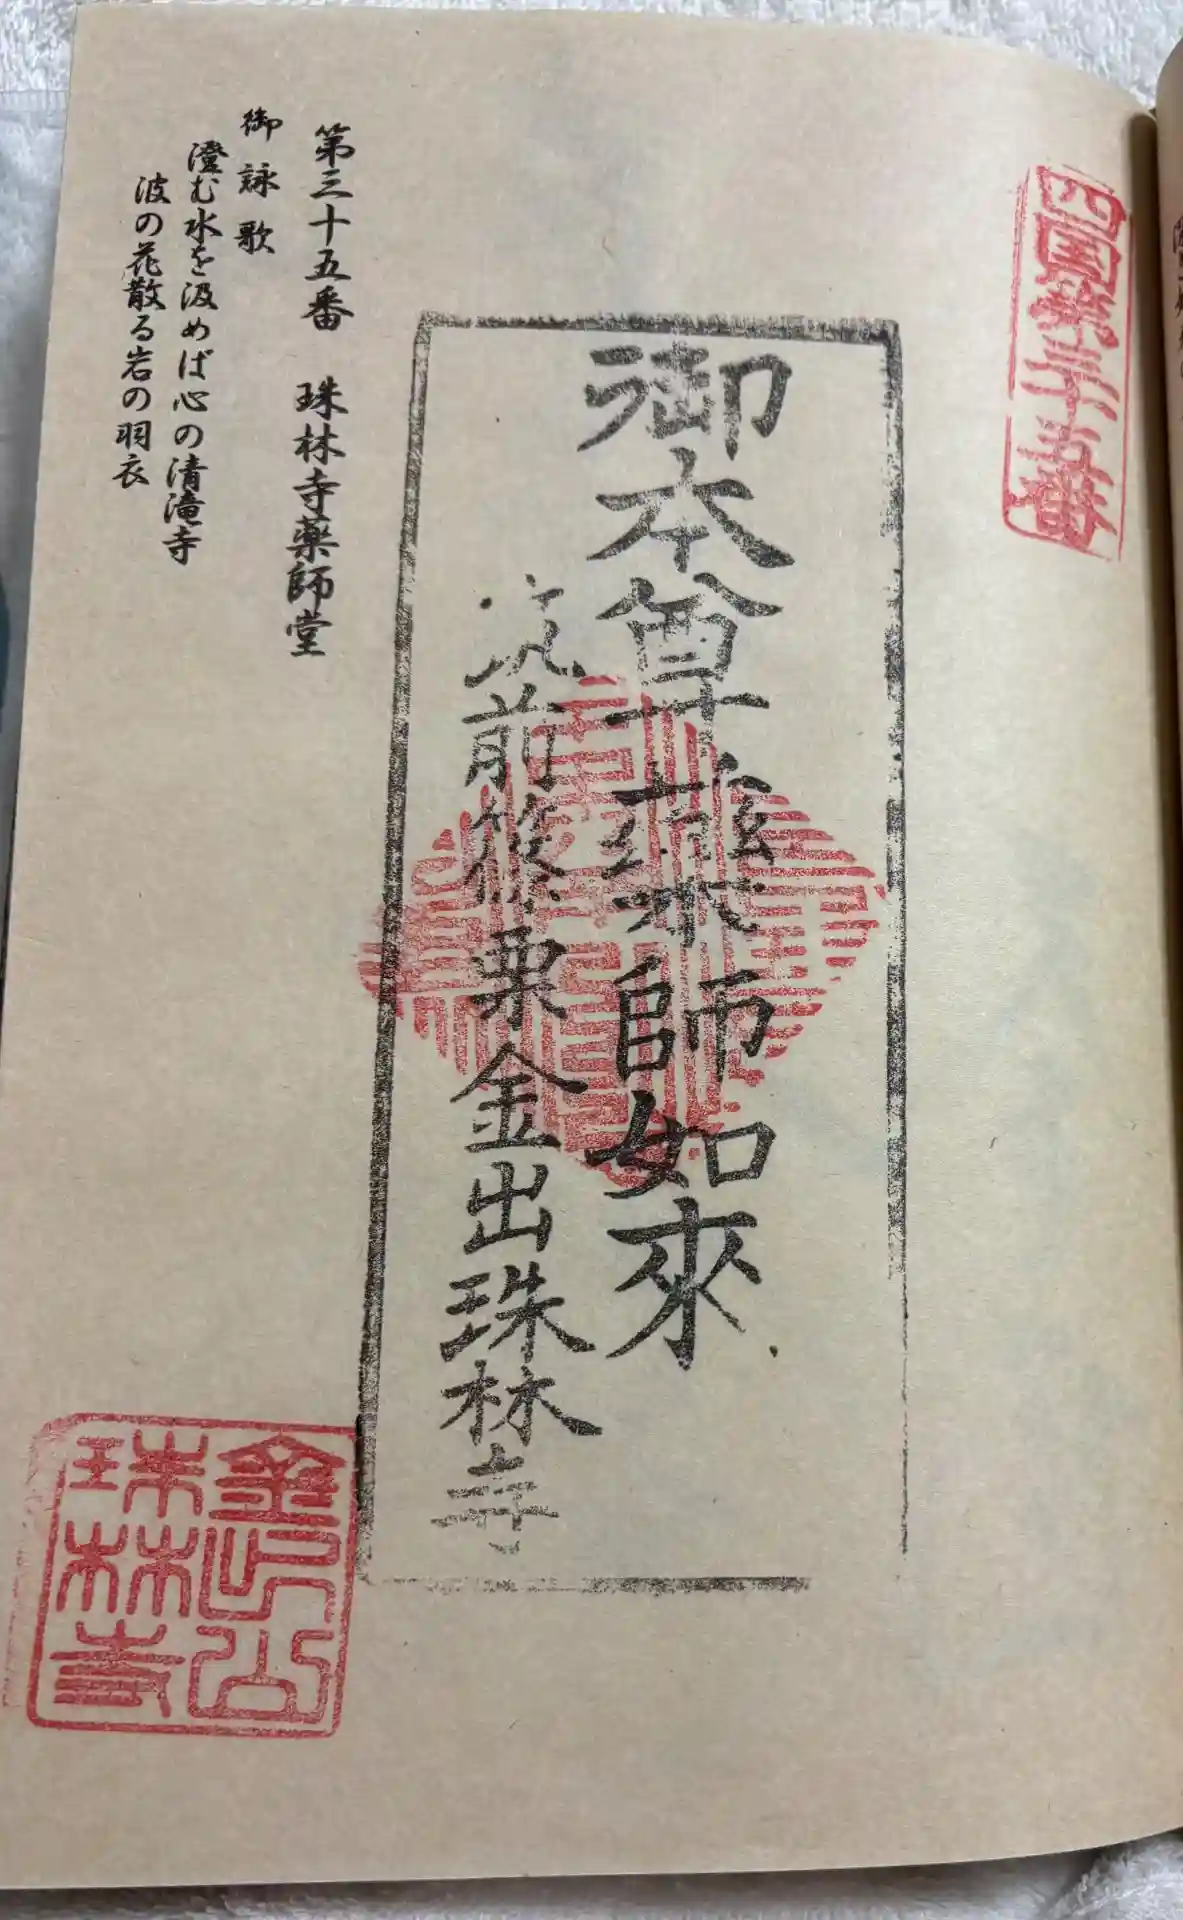 四国第三十五番
御本尊薬師如來
筑前篠栗金出珠林寺
第三十五番 珠林寺薬師堂
御詠歌
澄む水を汲めば心の清滝寺
波の花散る岩の羽衣
金出山
珠林寺